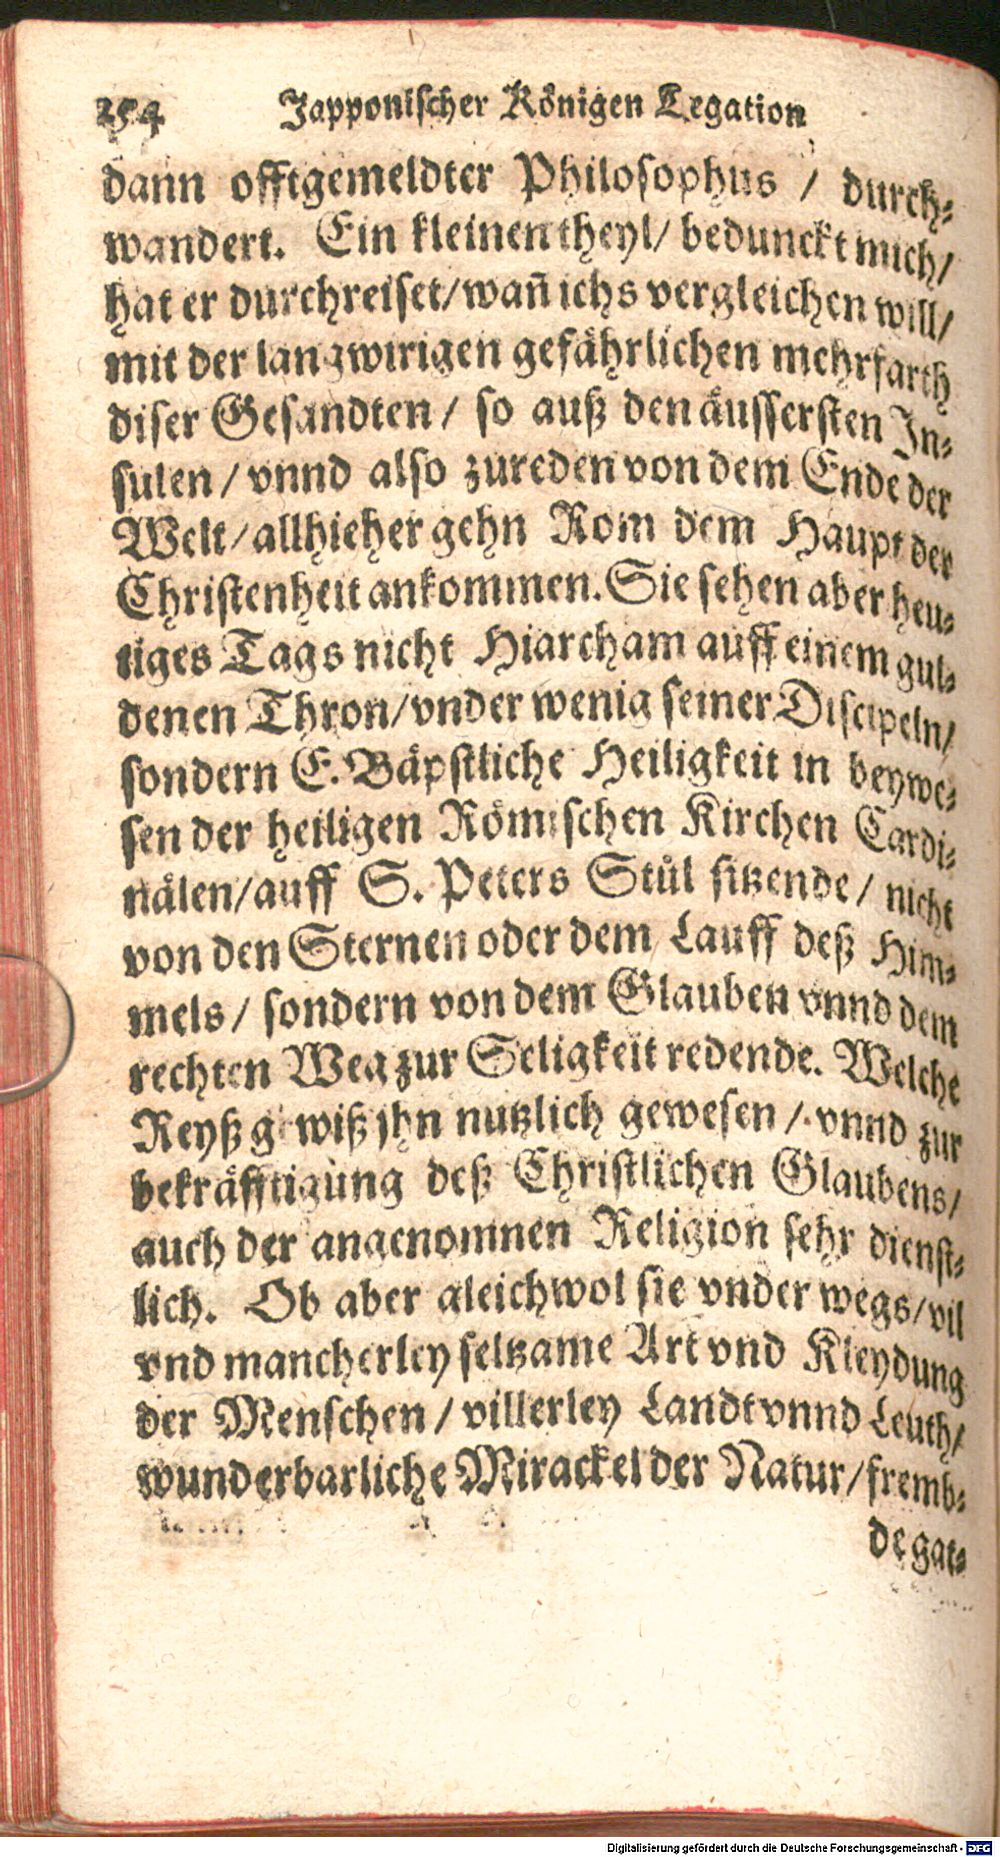 254 Japponischer Königen Legation
dann offtgemeldter Philosophus / durch⸗
wandert. Ein kleinen theyl / bedunckt mich /
hat er durchreiset / wañ ichs vergleichen will /
mit der langwirigen gefährlichen mehrfarth
diser Gesandten / so auß den äussersten In⸗
sulen / vnnd also zureden von dem Ende der
Welt / allhieher gehn Rom dem Haupt der
Christenheit ankommen. Sie sehen aber heu⸗
tiges Tags nicht Hiarcham auff einem gul⸗
denen Thron / vnder wenig seiner Discipeln /
sondern E. Bäpstliche Heiligkeit in beywe⸗
sen der heiligen Römischen Kirchen Cardi⸗
nälen / auff S. Peters Stůl sitzende / nicht
von den Sternen oder dem Lauff deß Him⸗
mels / sondern von dem Glauben vnnd dem
rechten Weg zur Seligkeit redende. Welche
Reyß gewiß jhn nutzlich gewesen / vnnd zur
bekräfftigung deß Christlichen Glaubens /
auch der angenomnen Religion sehr dienst⸗
lich. Ob aber gleichwol sie vnder wegs / vil
vnd mancherley seltzame Art vnd Kleydung
der Menschen / villerley Landt vnnd Leuth /
wunderbarliche Mirackel der Natur / fremb⸗
de gat⸗
Digitalisierung gefördert durch die Deutsche Forschungsgemeinschaft - DFG